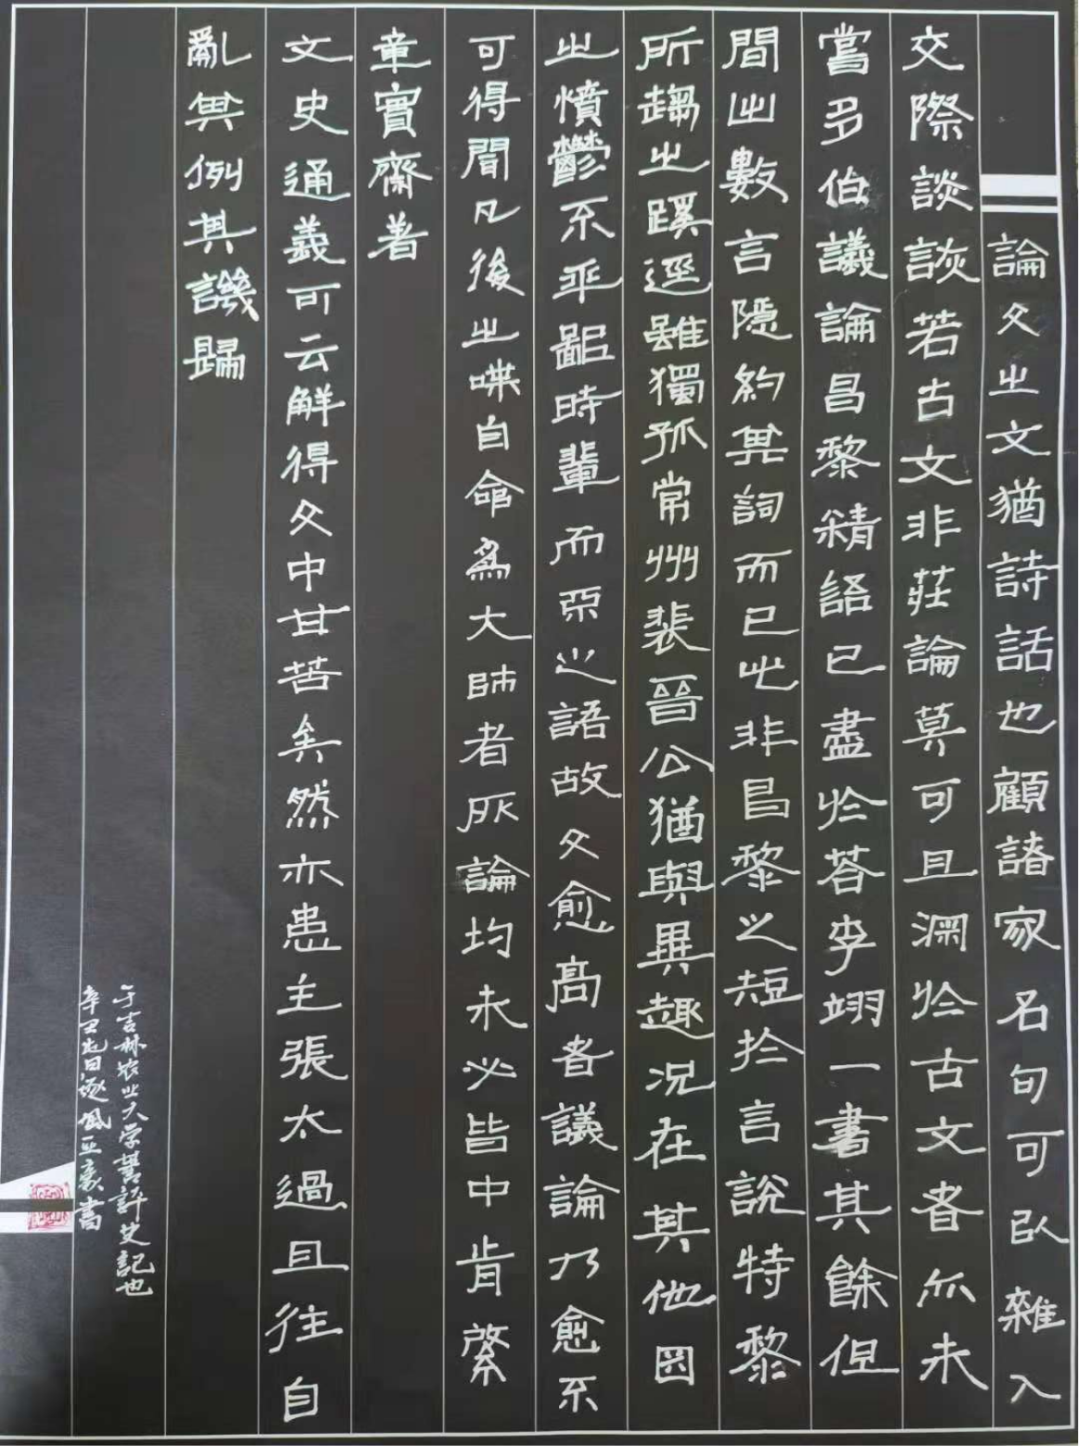 論文之文猶詩話也顧諸家名句可以雜入
交際談談若古文非莊論莫可且淵於古文者亦未
嘗多伯議論昌黎精語已盡於答李翊一書其餘但
間出數言隱約其詞而已此非昌黎之短於言說特黎
所趨之蹊逕雖獨孤常州裴晉公猶與異趣況在其他因
之憤鬱不平鄙時輩而亞之語故文愈高者議論乃愈不
可得聞凡後之喋自命為大師者所論均未必皆中肯綮
章實齋著
文史通義可云解得文中甘苦矣然亦患主張太過且往自
亂其例其譏歸
辛丑先日逐風正豪書
于吉林农业大学罢評史記也